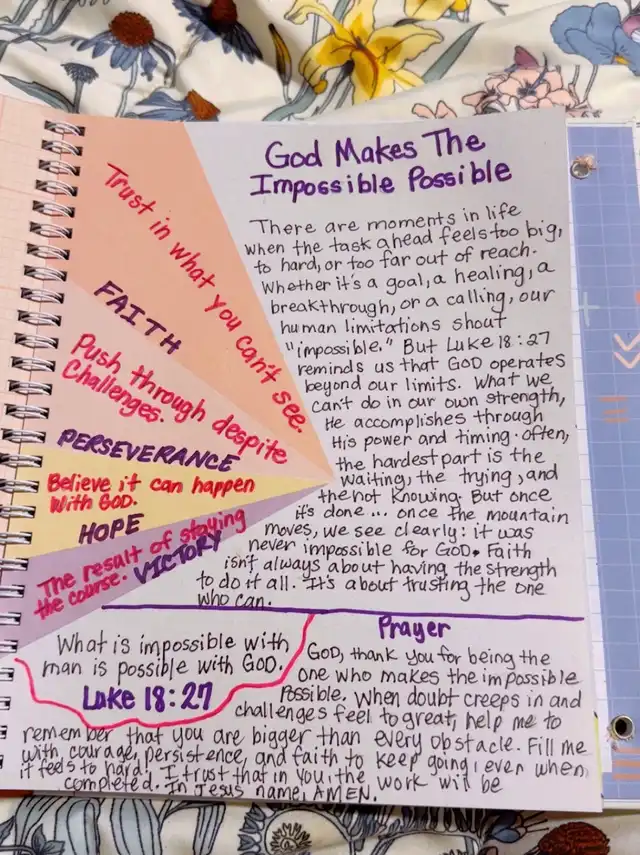 God Makes The
Impossible Possible
There are moments in life
when the task ahead feels too big,
to hard, or too far out of reach.
Whether it's a goal, a healing, a
breakthrough, or a calling, our
human limitations shout
"impossible." But Luke 18:27
reminds us that GOD operates
beyond our limits. What we
can't do in our own strength,
He accomplishes through
His power and timing. Often,
the hardest part is the
waiting, the trying, and
the not knowing. But once
it's done... once the mountain
moves, we see clearly: it was
never impossible for GOD. Faith
isn't always about having the strength
to do it all. It's about trusting the one
who can.
Trust in what you can't see.
FAITH
Push through despite
Challenges.
PERSEVERANCE
Believe it can happen
With GOD.
HOPE
The result of staying
the course. VICTORY
What is impossible with
man is possible with GOD.
Luke 18:27
Prayer
GOD, thank you for being the
one who makes the impossible
Possible. When doubt creeps in and
challenges feel to great, help me to
remember that you are bigger than every obstacle. Fill me
with courage, persistence, and faith to keep going, even when
it feels to hard. I trust that in you, the work will be
completed. In Jesus name, AMEN.